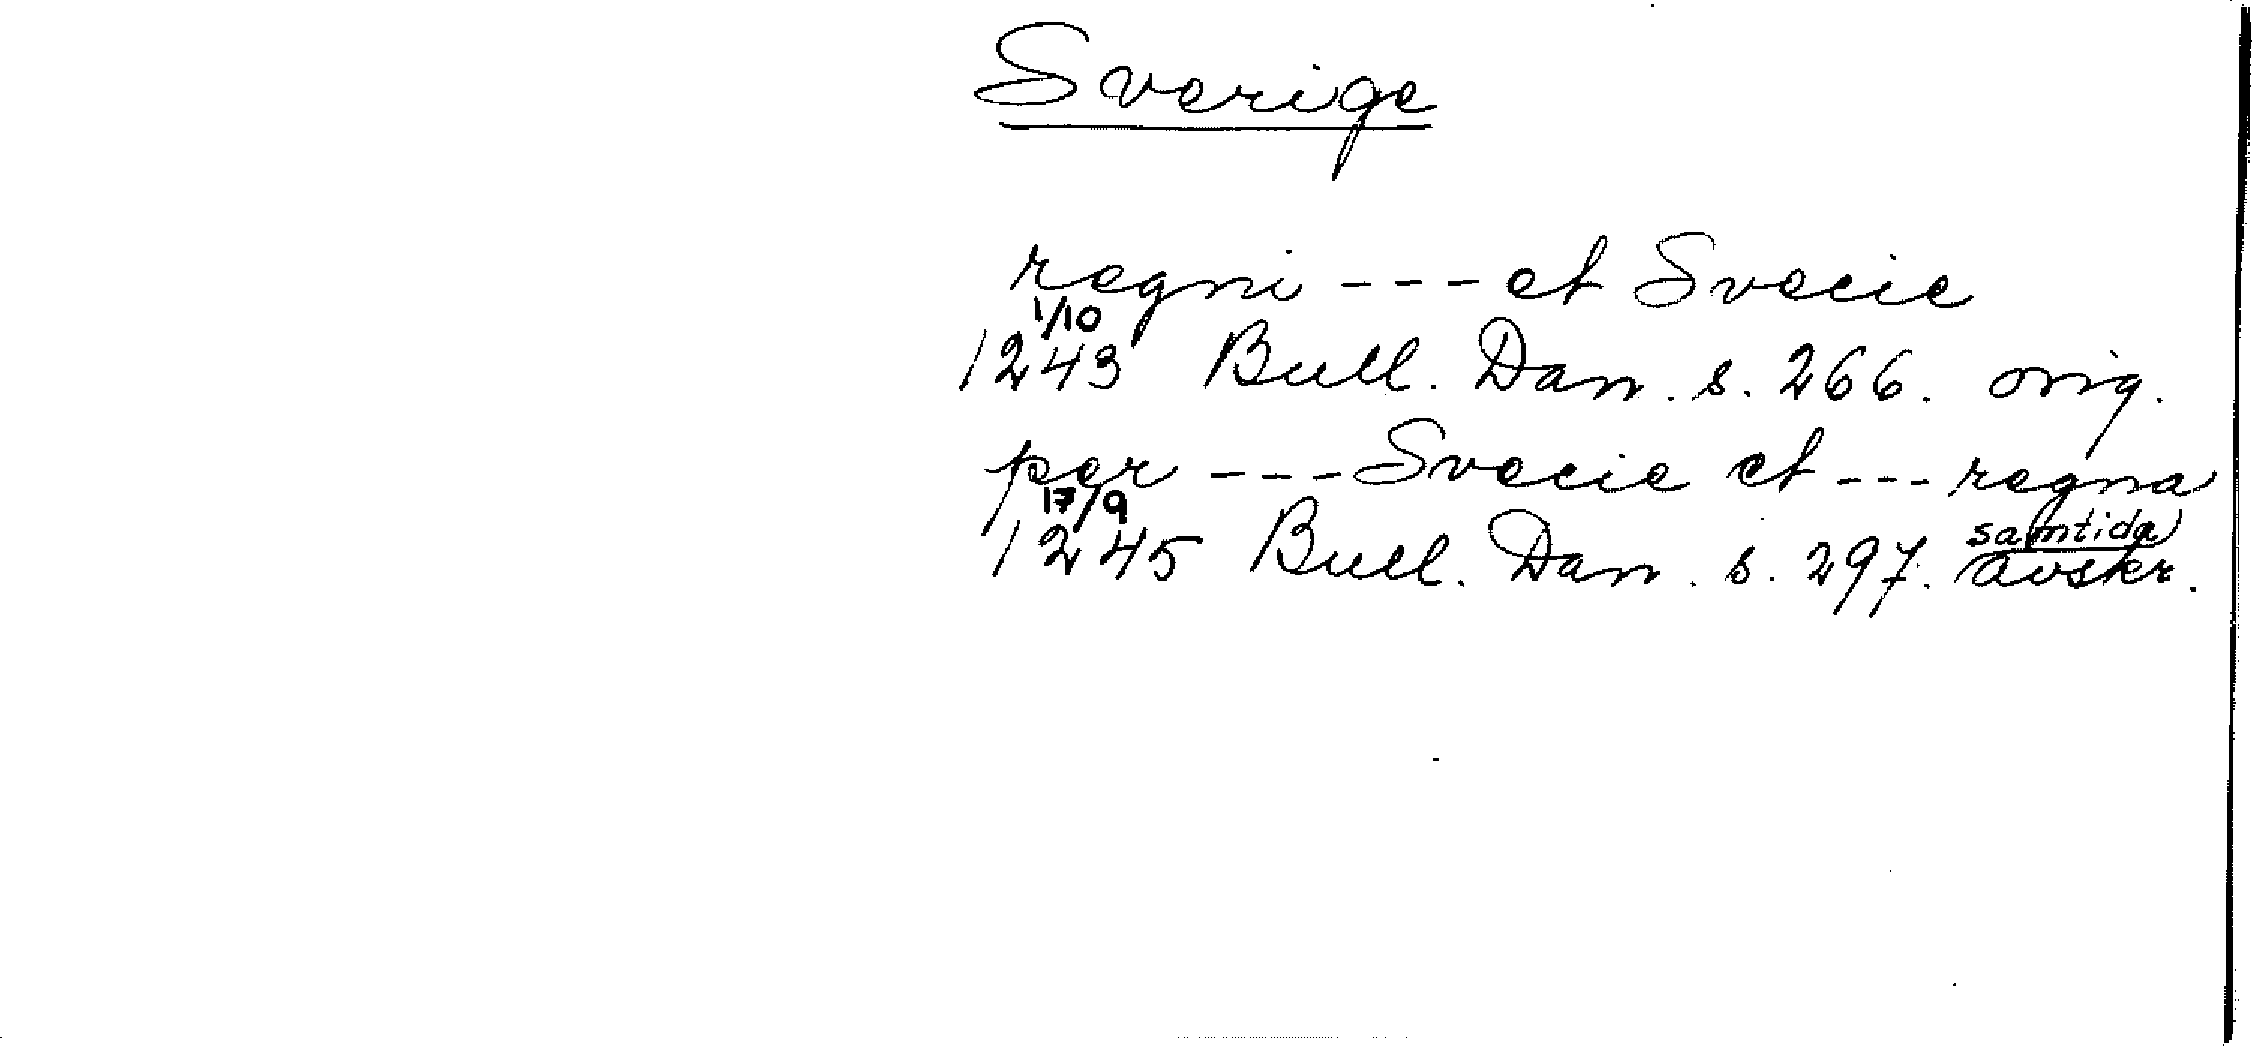 Sverige
regni --- et Svecie
1/10
1243 Bull. Dan. s. 266. orig.
per --- Svecie et --- regna
17/9
1245 Bull. Dan. s. 297. samtida avskr.